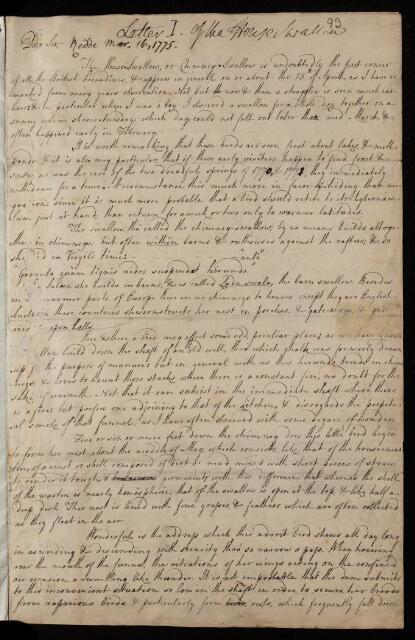 93
Letter I. Of the House Swallow
Dear Sir Redde Mar. 16, 1775.
The House-swallow, or chimney-swallow is undoubtedly the first comer
of all the British hirundines; & appears in general on or about the 13th of April, as I have re
marked from many years observation. Not but now & then a straggler is seen much ear
lier: & in particular when I was a boy I observed a swallow for a whole day together on a
sunny warm shrove-tuesday; which day could not fall out later than mid March, &
often happened early in February.
It is worth remarking that these birds are seen first about lakes, & mill-
ponds: & it is also very particular, that if these early visitors happen to find frost &
snow, as was the case of the two dreadful springs of 1770, & 1771, they immediately
withdraw for a time. A circumstance this much more in favor of hiding than mi-
gration: since it is much more probable that a bird should retire to its hybernacu-
lum just at hand, than return for a week or two only to warmer latitudes.
The swallow, tho' called the chimney-swallow, by no means builds altoge-
ther in chimneys; but often within barns & outhouses against the rafters; & so
she did in Virgil's time:
"ante
Garrula quam tignis nidos suspendat hirundo."
In Sweden she builds in barns, & is called Ladu swala, the barn swallow. Besides
in the warmer parts of Europe there are no chimneys to houses except they are English-
built: in these countries she constructs her nest in porches, & gate-ways, & galle-
ries & open halls.
Here & there a bird may affect some odd, peculiar place; as we have known
one build down the shaft of an old well, thro' which chalk was formerly drawn
up for the purpose of manure: but in general with us this hirundo breeds in chim-
neys; & loves to haunt those stacks where there is a constant fire, no doubt for the
sake of warmth. Not that it can subsist in the immediate shaft where there
is a fire; but prefers one adjoining to that of the kitchen, & disregards the perpetu-
al smoke of that funnel, as I have often observed with some degree of wonder.
Five or six or more feet down the chimney does this little bird begin
to form her nest about the middle of May, which consists, like that of the house-mar-
tin, of a crust or shell composed of dirt or mud mixed with short pieces of straw
to render it tough, & permanent; with this difference, that whereas the shell
of the martin is nearly hemispheric; that of the swallow is open at the top, & like half a
deep dish. This nest is lined with fine grasses & feathers which are often collected
as they float in the air.
Wonderful is the address which this adroit bird shews all day long
in ascending & descending with security thro' so narrow a pass. When hovering
over the mouth of the funnel, the vibrations of her wings acting on the confined
air occasion a rumbling like thunder. It is not improbable that the dam submits
to this inconvenient situation so low in the shaft in order to secure her broods
from rapacious birds; & particularly from owls, which frequently fall down